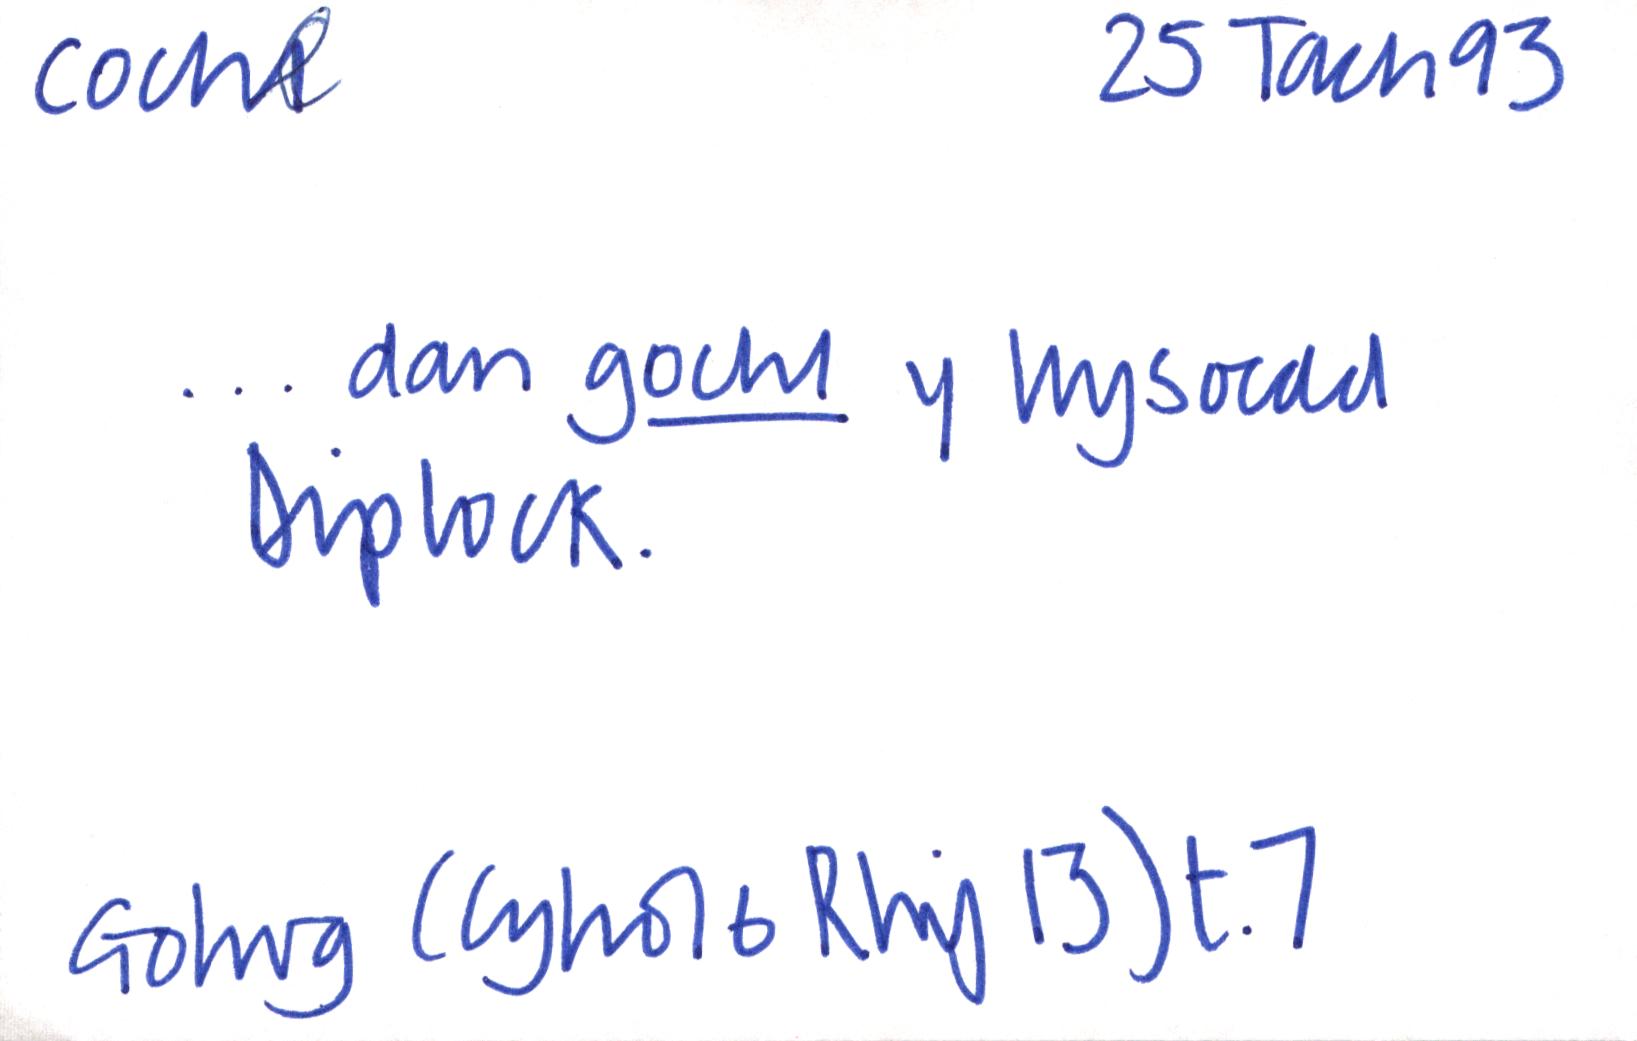 cochl 25 Tach 93
... dan gochl y llysoedd
Diplock.
Golwg (Cyfrol 6 Rhif 13) t. 7